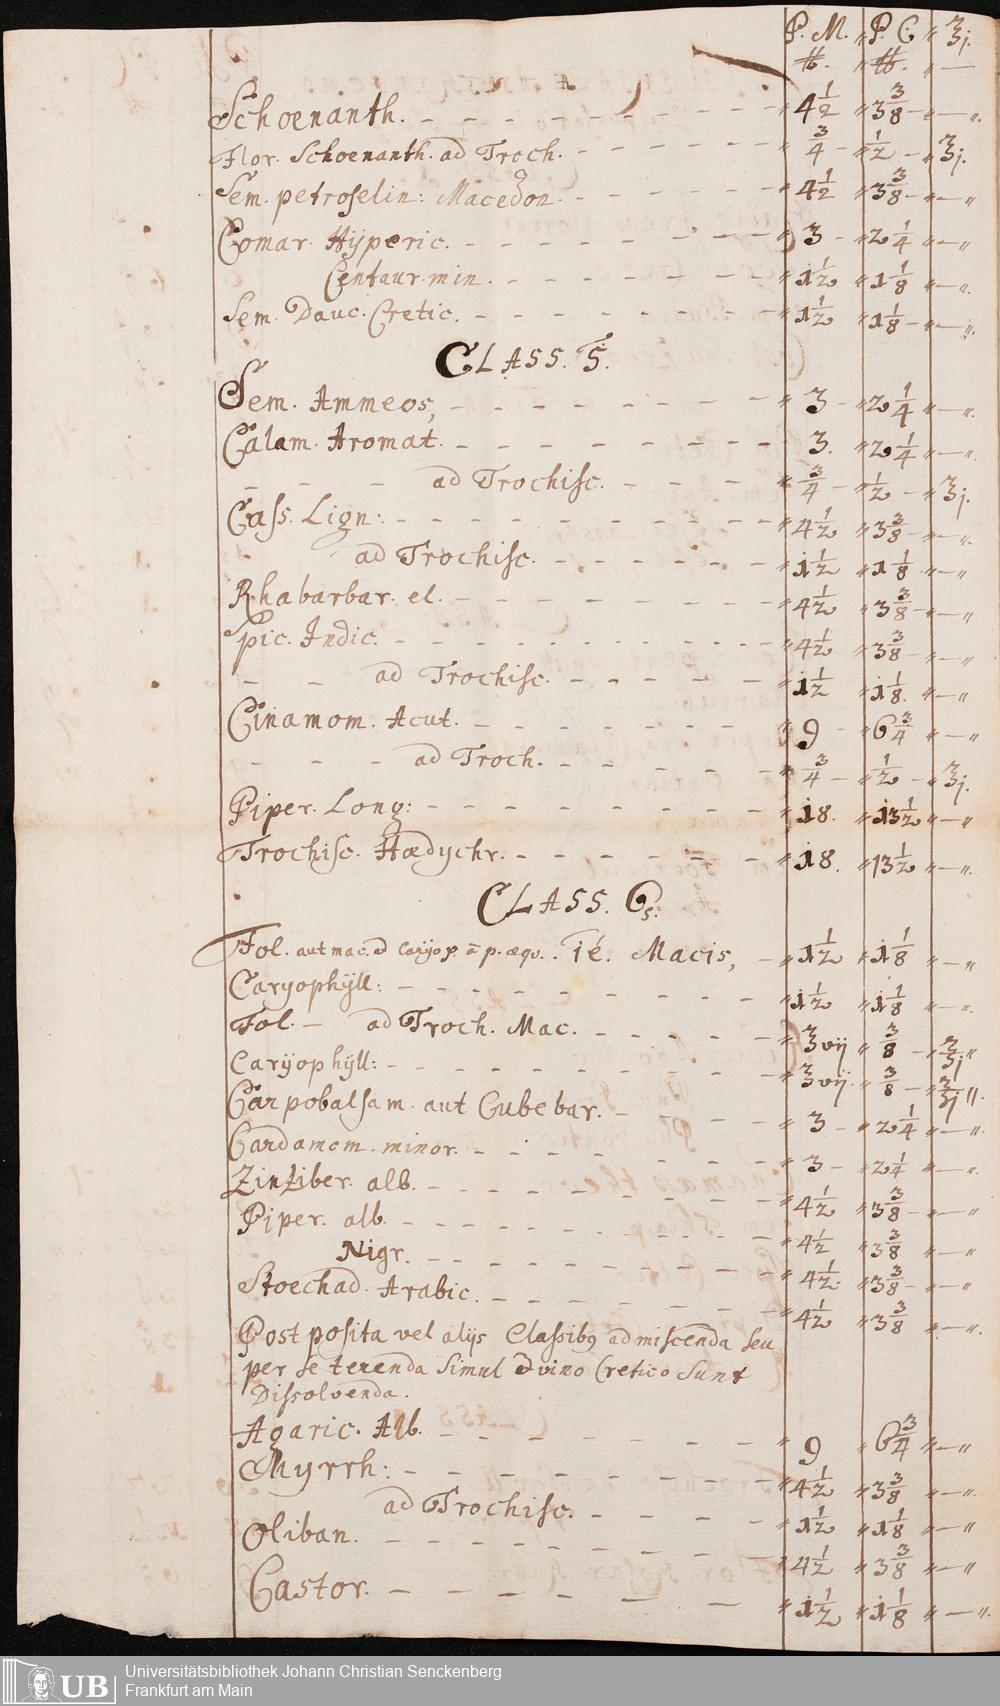 P. M. " P. C. " ʒj.
℔. " ℔. " —
Schoenanth. - - - - - " 4 1/2 " 3 3/8 - " — ".
Flor. Schoenanth. ad Troch. - - - - - " 3/4 - " 1/2 - " ʒj.
Sem. petroselin: Macedon. - - - - - " 4 1/2 " 3 3/8 - " — "
Comar. Hÿperic. - - - - - " 3 - " 2 1/4 " — "
Centaur. min. - - - - - " 1 1/2 " 1 1/8 " — ".
Sem. Dauc. Cretic. - - - - - " 1 1/2 " 1 1/8 - " — ".
CLASS. 5.
Sem. Ammeos, - - - - - " 3 - " 2 1/4 " — ".
Calam. Aromat. - - - - - " 3. " 2 1/4 " — ".
- - - ad Trochisc. - - - " 3/4 - " 1/2 - " ʒj.
Cass. Lign: - - - - - " 4 1/2 " 3 3/8 - " — ".
ad Trochisc. - - - - - " 1 1/2 " 1 1/8 " — "
Rhabarbar. el. - - - - - " 4 1/2 " 3 3/8 - " — "
Spic. Indic. - - - - - " 4 1/2 " 3 3/8 - " — "
- - ad Trochisc. - - - - - " 1 1/2 " 1 1/8. " — "
Cinamom. Acut. - - - - - " 9 - " 6 3/4 " — "
- - - ad Troch. - - - - - " 3/4 - " 1/2 - " ʒj.
Piper. Long: - - - - - " 18. " 13 1/2 " — "
Trochisc. Hædychr. - - - - - " 18. " 13 1/2 " — ".
CLASS. 6.
Fol. aut mac. Caryop. ā p. æqu. . ié. Macis, - " 1 1/2 " 1 1/8 " — "
Caryophÿll: - - - - - " 1 1/2 " 1 1/8 " — ".
Fol. — ad Troch. Mac. - - - - - " ʒvij " 3/8 - " ʒj "
Carÿophÿll: - - - - - " ʒvij. " 3/8 - " ʒj ".
Carpobalsam. aut Cubebar. - - - " 3 - " 2 1/4 " — ".
Cardamom. minor. - - - - - " 3 - " 2 1/4 " — ".
Zinziber. alb. - - - - - " 4 1/2 " 3 3/8 - " — "
Piper. alb. - - - - - " 4 1/2 " 3 3/8 " — "
Nigr. - - - - - " 4 1/2 " 3 3/8 - " — "
Stoechad. Arabic. - - - - - " 4 1/2 " 3 3/8 " — ".
Post posita vel alijs Classibꝰ admiscenda seu
per se terenda simul vino Cretico sunt
Dissolvenda.
Agaric. Alb. - - - - - " 9 " 6 3/4 " — "
Myrrh: - - - - - " 4 1/2 " 3 3/8 " — ".
ad Trochisc. - - - - - " 1 1/2 " 1 1/8 " — "
Oliban. - - - - - " 4 1/2 " 3 3/8 " — "
Castor. - - - - - " 1 1/2 " 1 1/8 " — ".
UB Universitätsbibliothek Johann Christian Senckenberg
Frankfurt am Main